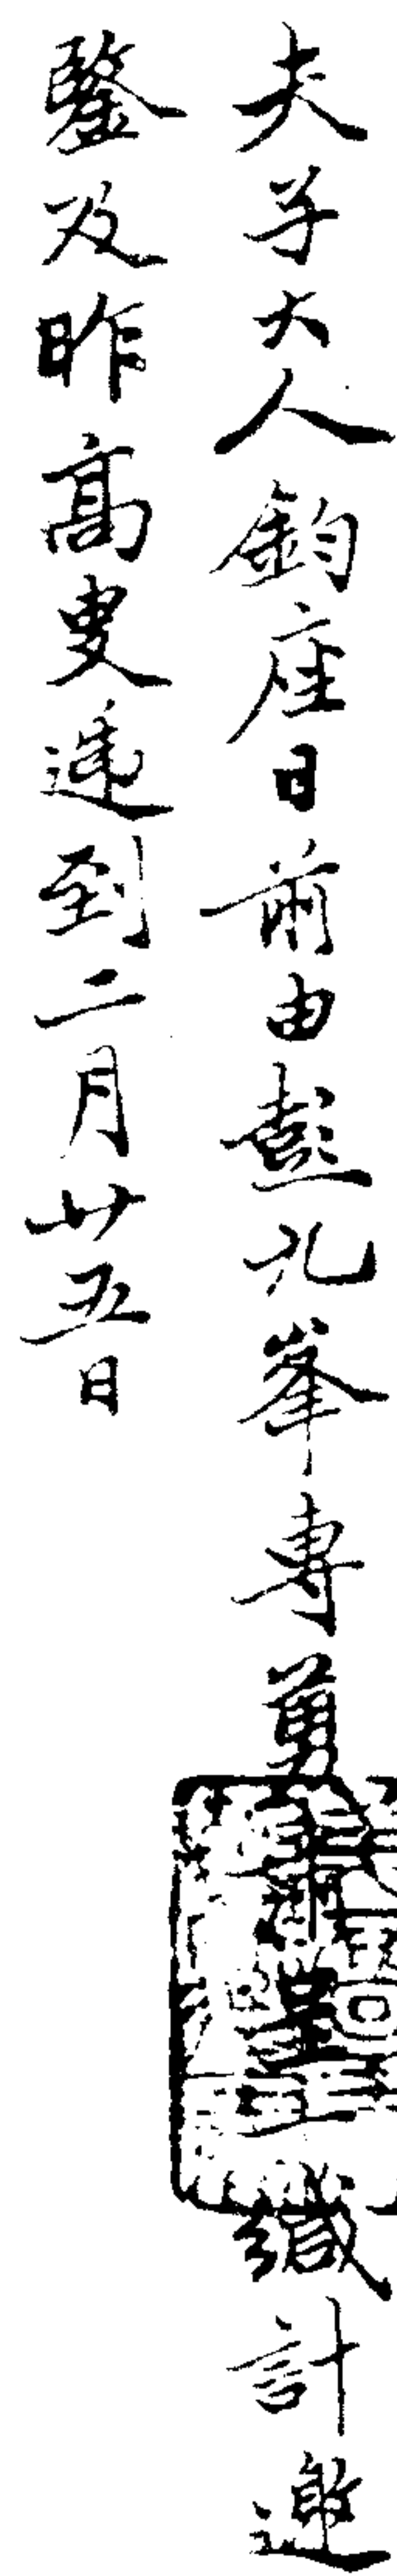 夫子大人鈞座日前由彭九峯專勇肅呈一緘計邀
鑒及昨高叟遞到二月廿五日